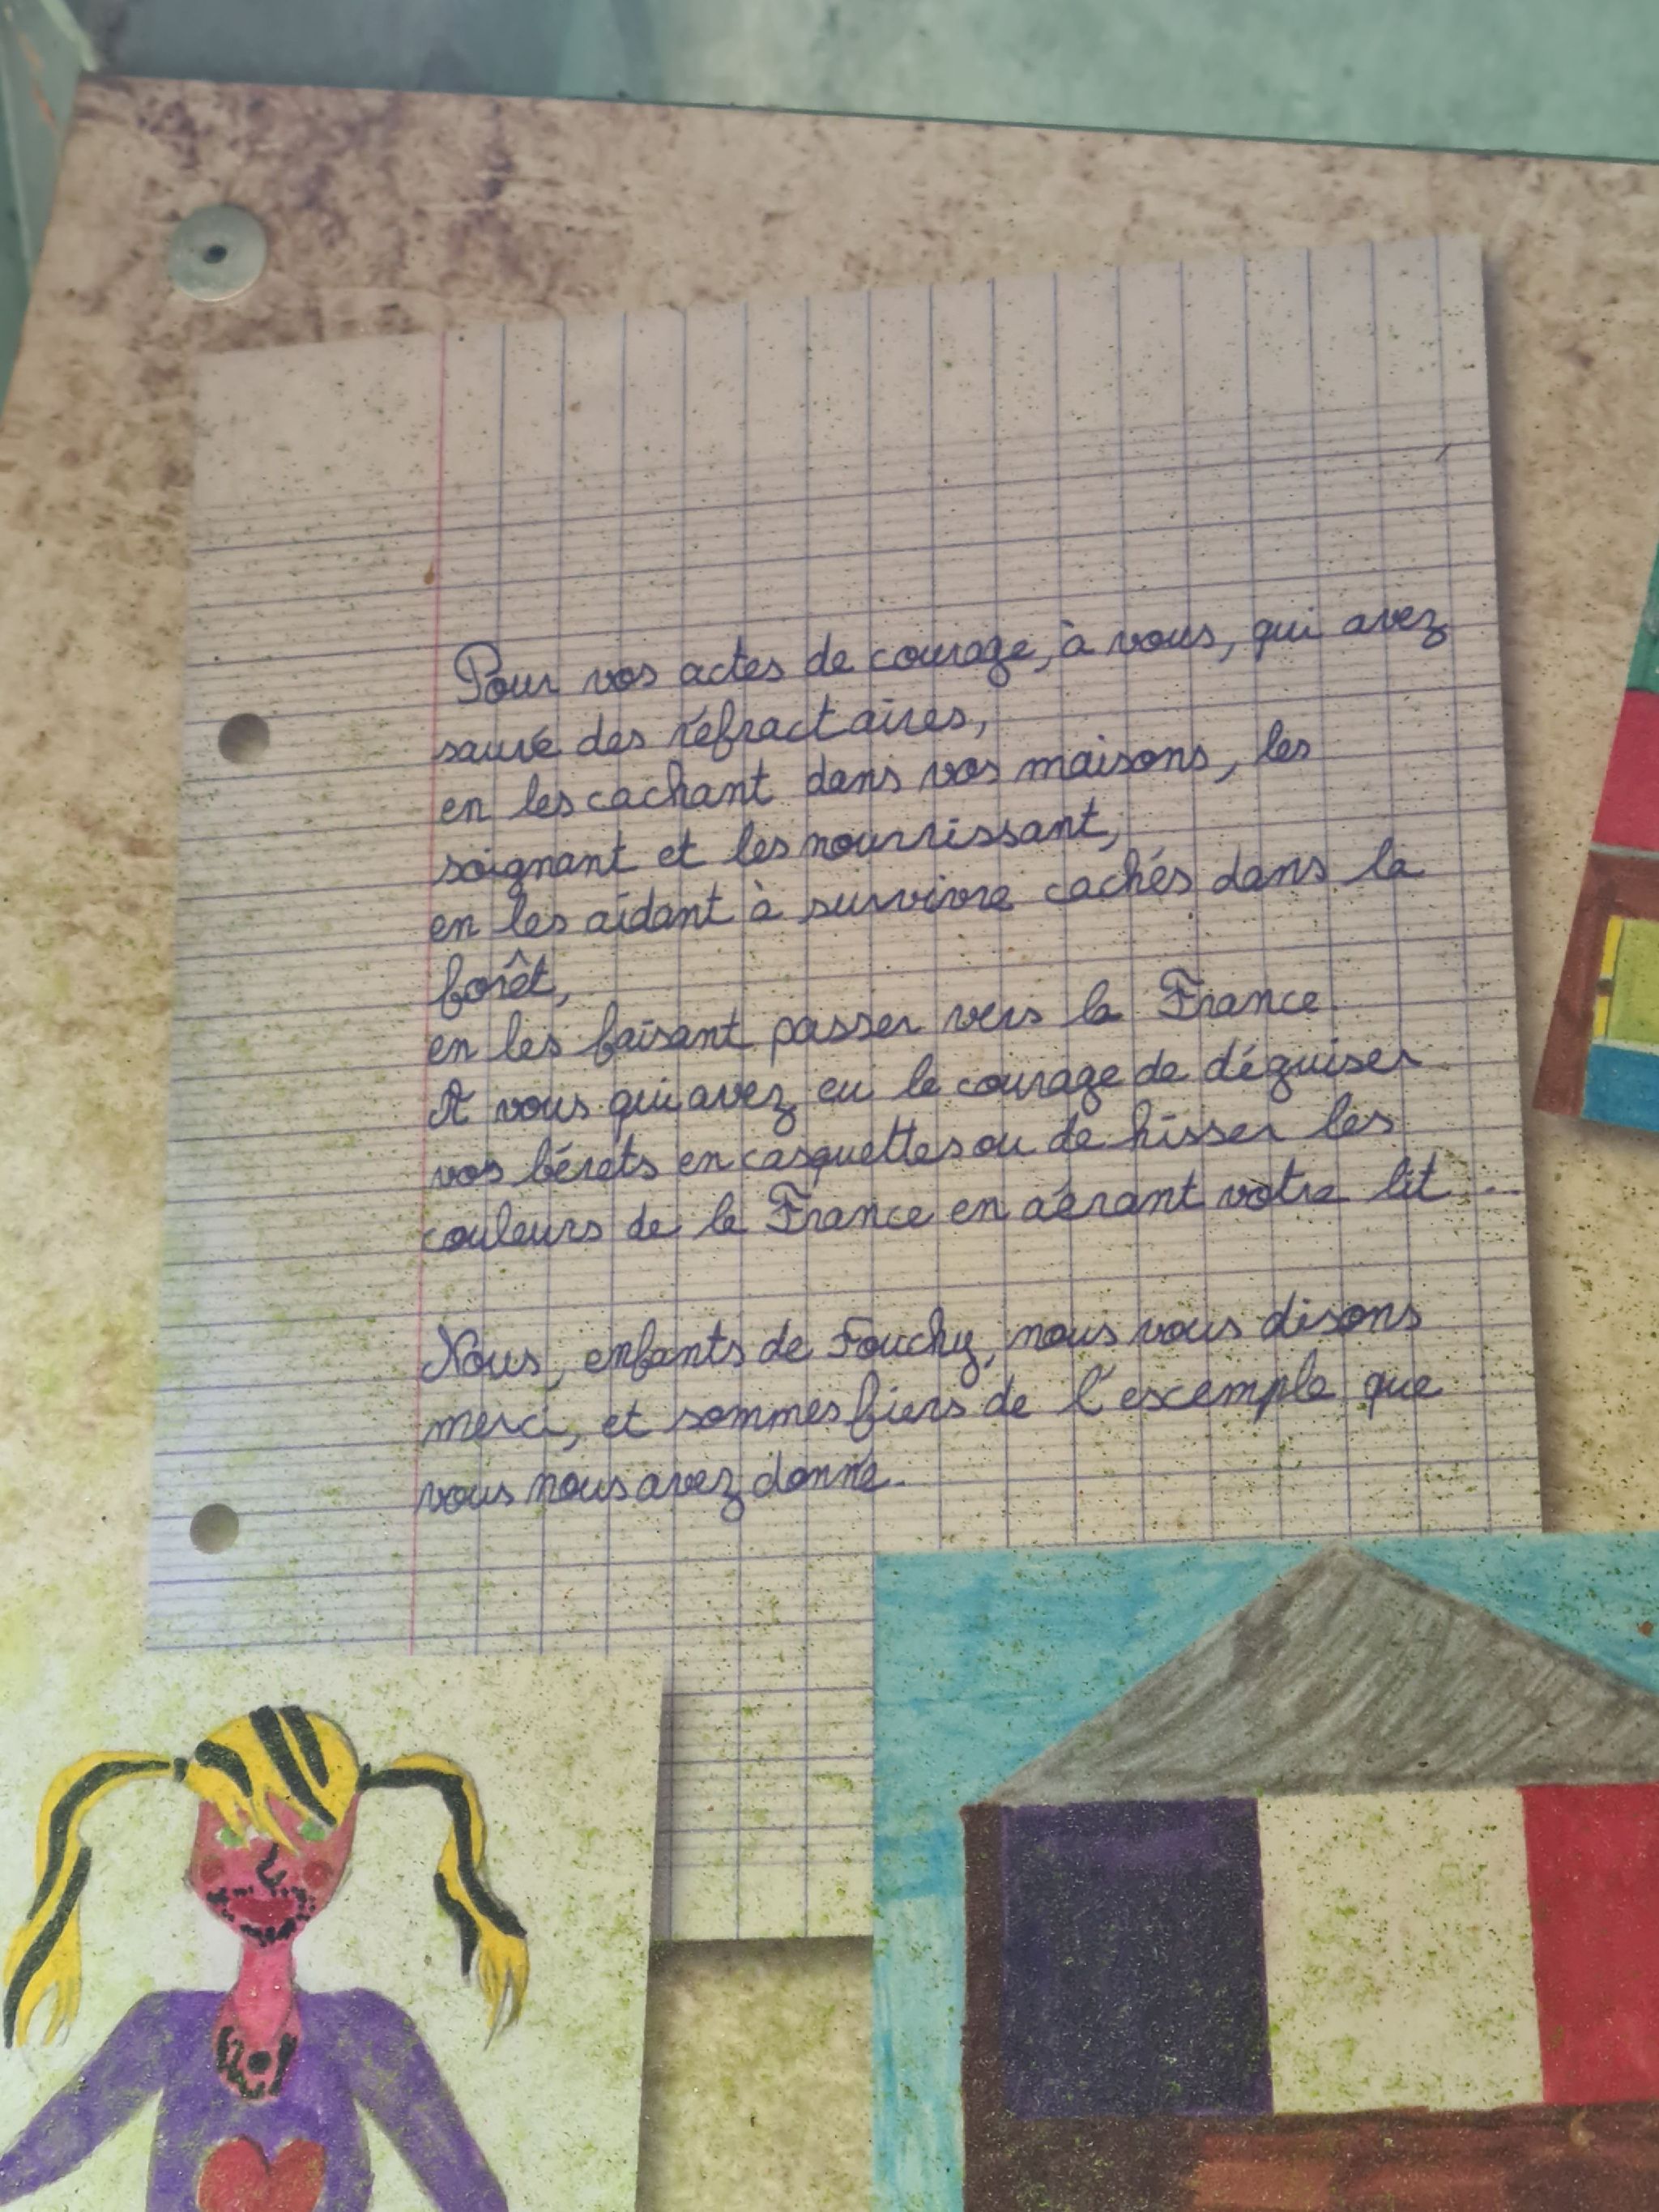 Pour vos actes de courage, à vous, qui avez
sauvé des réfractaires,
en les cachant dans vos maisons, les
soignant et les nourrissant,
en les aidant à survivre cachés dans la
forêt,
en les faisant passer vers la France.
A vous qui avez eu le courage de déguiser
vos bérets en casquettes ou de hisser les
couleurs de la France en aérant votre lit ...
Nous, enfants de Fouchy, nous vous disons
merci, et sommes fiers de l'exemple que
vous nous avez donné.